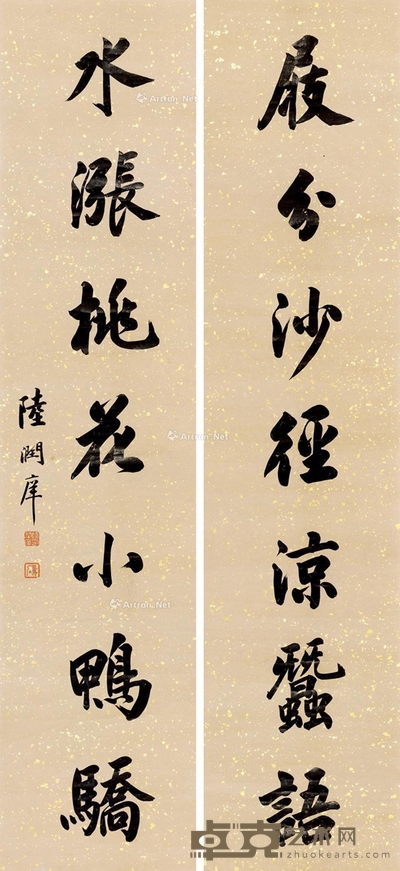 屐分沙徑涼蠶語
水漲桃花小鴨驕
陸潤庠
Artron.Net
Artron.Net
Artron.Net
卓克艺术网
zhuokearts.com